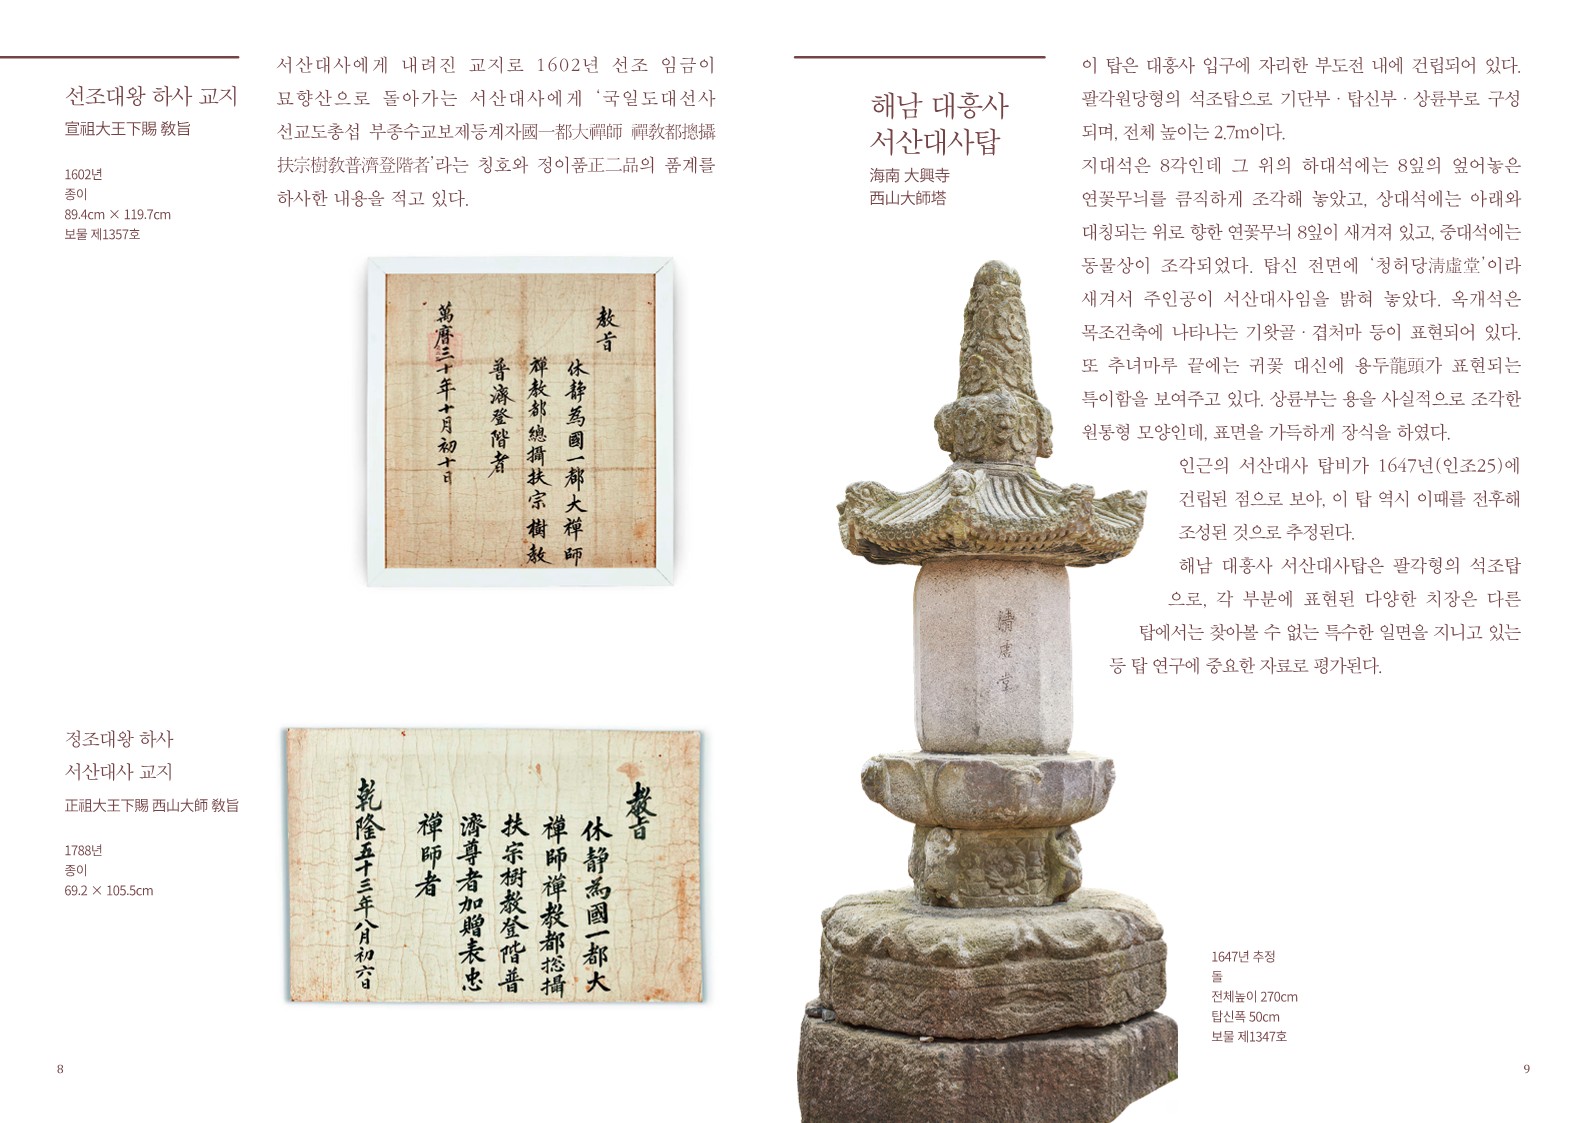 선조대왕 하사 교지
宣祖大王下賜 敎旨
1602년
종이
89.4cm × 119.7cm
보물 제1357호
서산대사에게 내려진 교지로 1602년 선조 임금이
묘향산으로 돌아가는 서산대사에게 ‘국일도대선사
선교도총섭 부종수교보제등계자國一都大禪師 禪敎都摠攝
扶宗樹敎普濟登階者’라는 칭호와 정이품正二品의 품계를
하사한 내용을 적고 있다.
敎旨
休靜爲國一都大禪師
禪敎都總攝扶宗樹敎
普濟登階者
萬曆三十年十月初十日
정조대왕 하사
서산대사 교지
正祖大王下賜 西山大師 敎旨
1788년
종이
69.2 × 105.5cm
敎旨
休靜爲國一都大
禪師禪敎都摠攝
扶宗樹敎登階普
濟尊者加贈表忠
禪師者
乾隆五十三年八月初六日
8
해남 대흥사
서산대사탑
海南 大興寺
西山大師塔
이 탑은 대흥사 입구에 자리한 부도전 내에 건립되어 있다.
팔각원당형의 석조탑으로 기단부 · 탑신부 · 상륜부로 구성
되며, 전체 높이는 2.7m이다.
지대석은 8각인데 그 위의 하대석에는 8잎의 엎어놓은
연꽃무늬를 큼직하게 조각해 놓았고, 상대석에는 아래와
대칭되는 위로 향한 연꽃무늬 8잎이 새겨져 있고, 중대석에는
동물상이 조각되었다. 탑신 전면에 ‘청허당淸虛堂’이라
새겨서 주인공이 서산대사임을 밝혀 놓았다. 옥개석은
목조건축에 나타나는 기왓골 · 겹처마 등이 표현되어 있다.
또 추녀마루 끝에는 귀꽃 대신에 용두龍頭가 표현되는
특이함을 보여주고 있다. 상륜부는 용을 사실적으로 조각한
원통형 모양인데, 표면을 가득하게 장식을 하였다.
인근의 서산대사 탑비가 1647년(인조25)에
건립된 점으로 보아, 이 탑 역시 이때를 전후해
조성된 것으로 추정된다.
해남 대흥사 서산대사탑은 팔각형의 석조탑
으로, 각 부분에 표현된 다양한 치장은 다른
탑에서는 찾아볼 수 없는 특수한 일면을 지니고 있는
등 탑 연구에 중요한 자료로 평가된다.
淸虛堂
1647년 추정
돌
전체높이 270cm
탑신폭 50cm
보물 제1347호
9